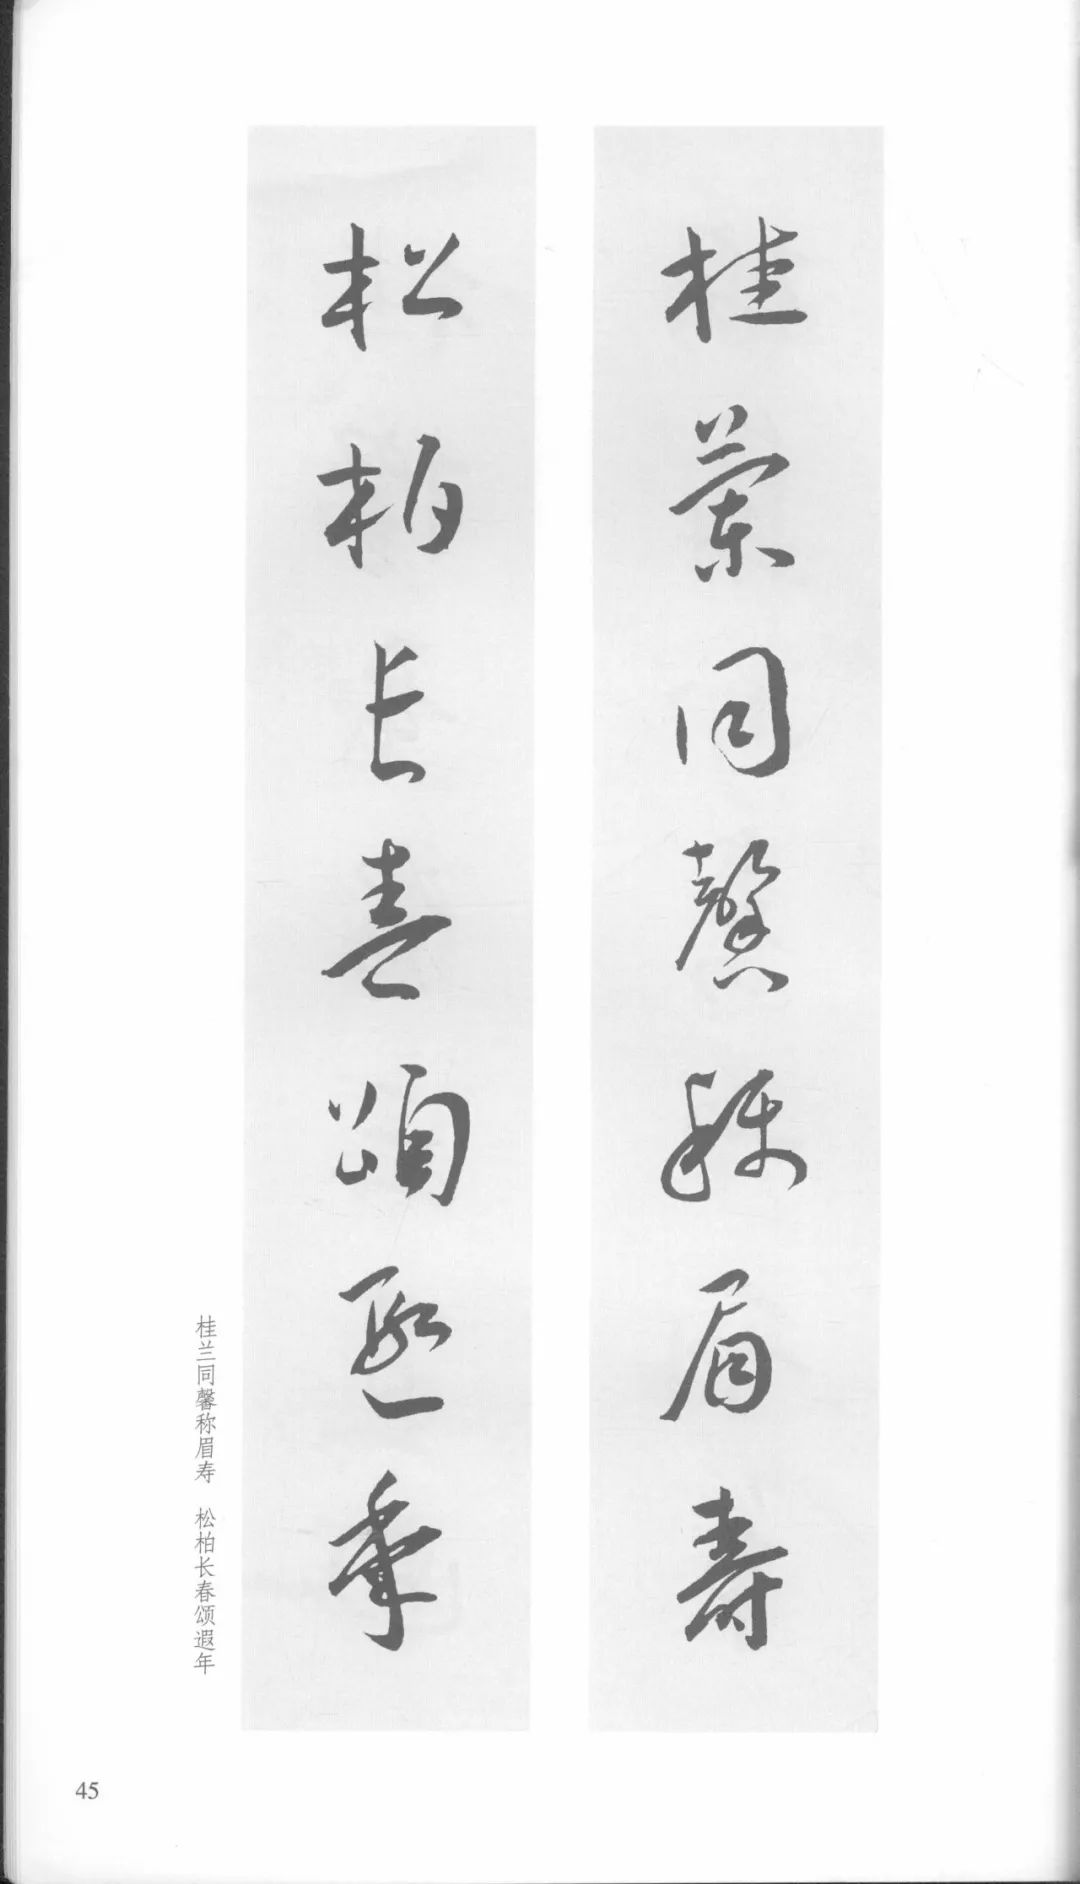 桂蘭同馨稱眉壽
松柏長春頌遐年
桂兰同馨称眉寿 松柏长春颂遐年
45